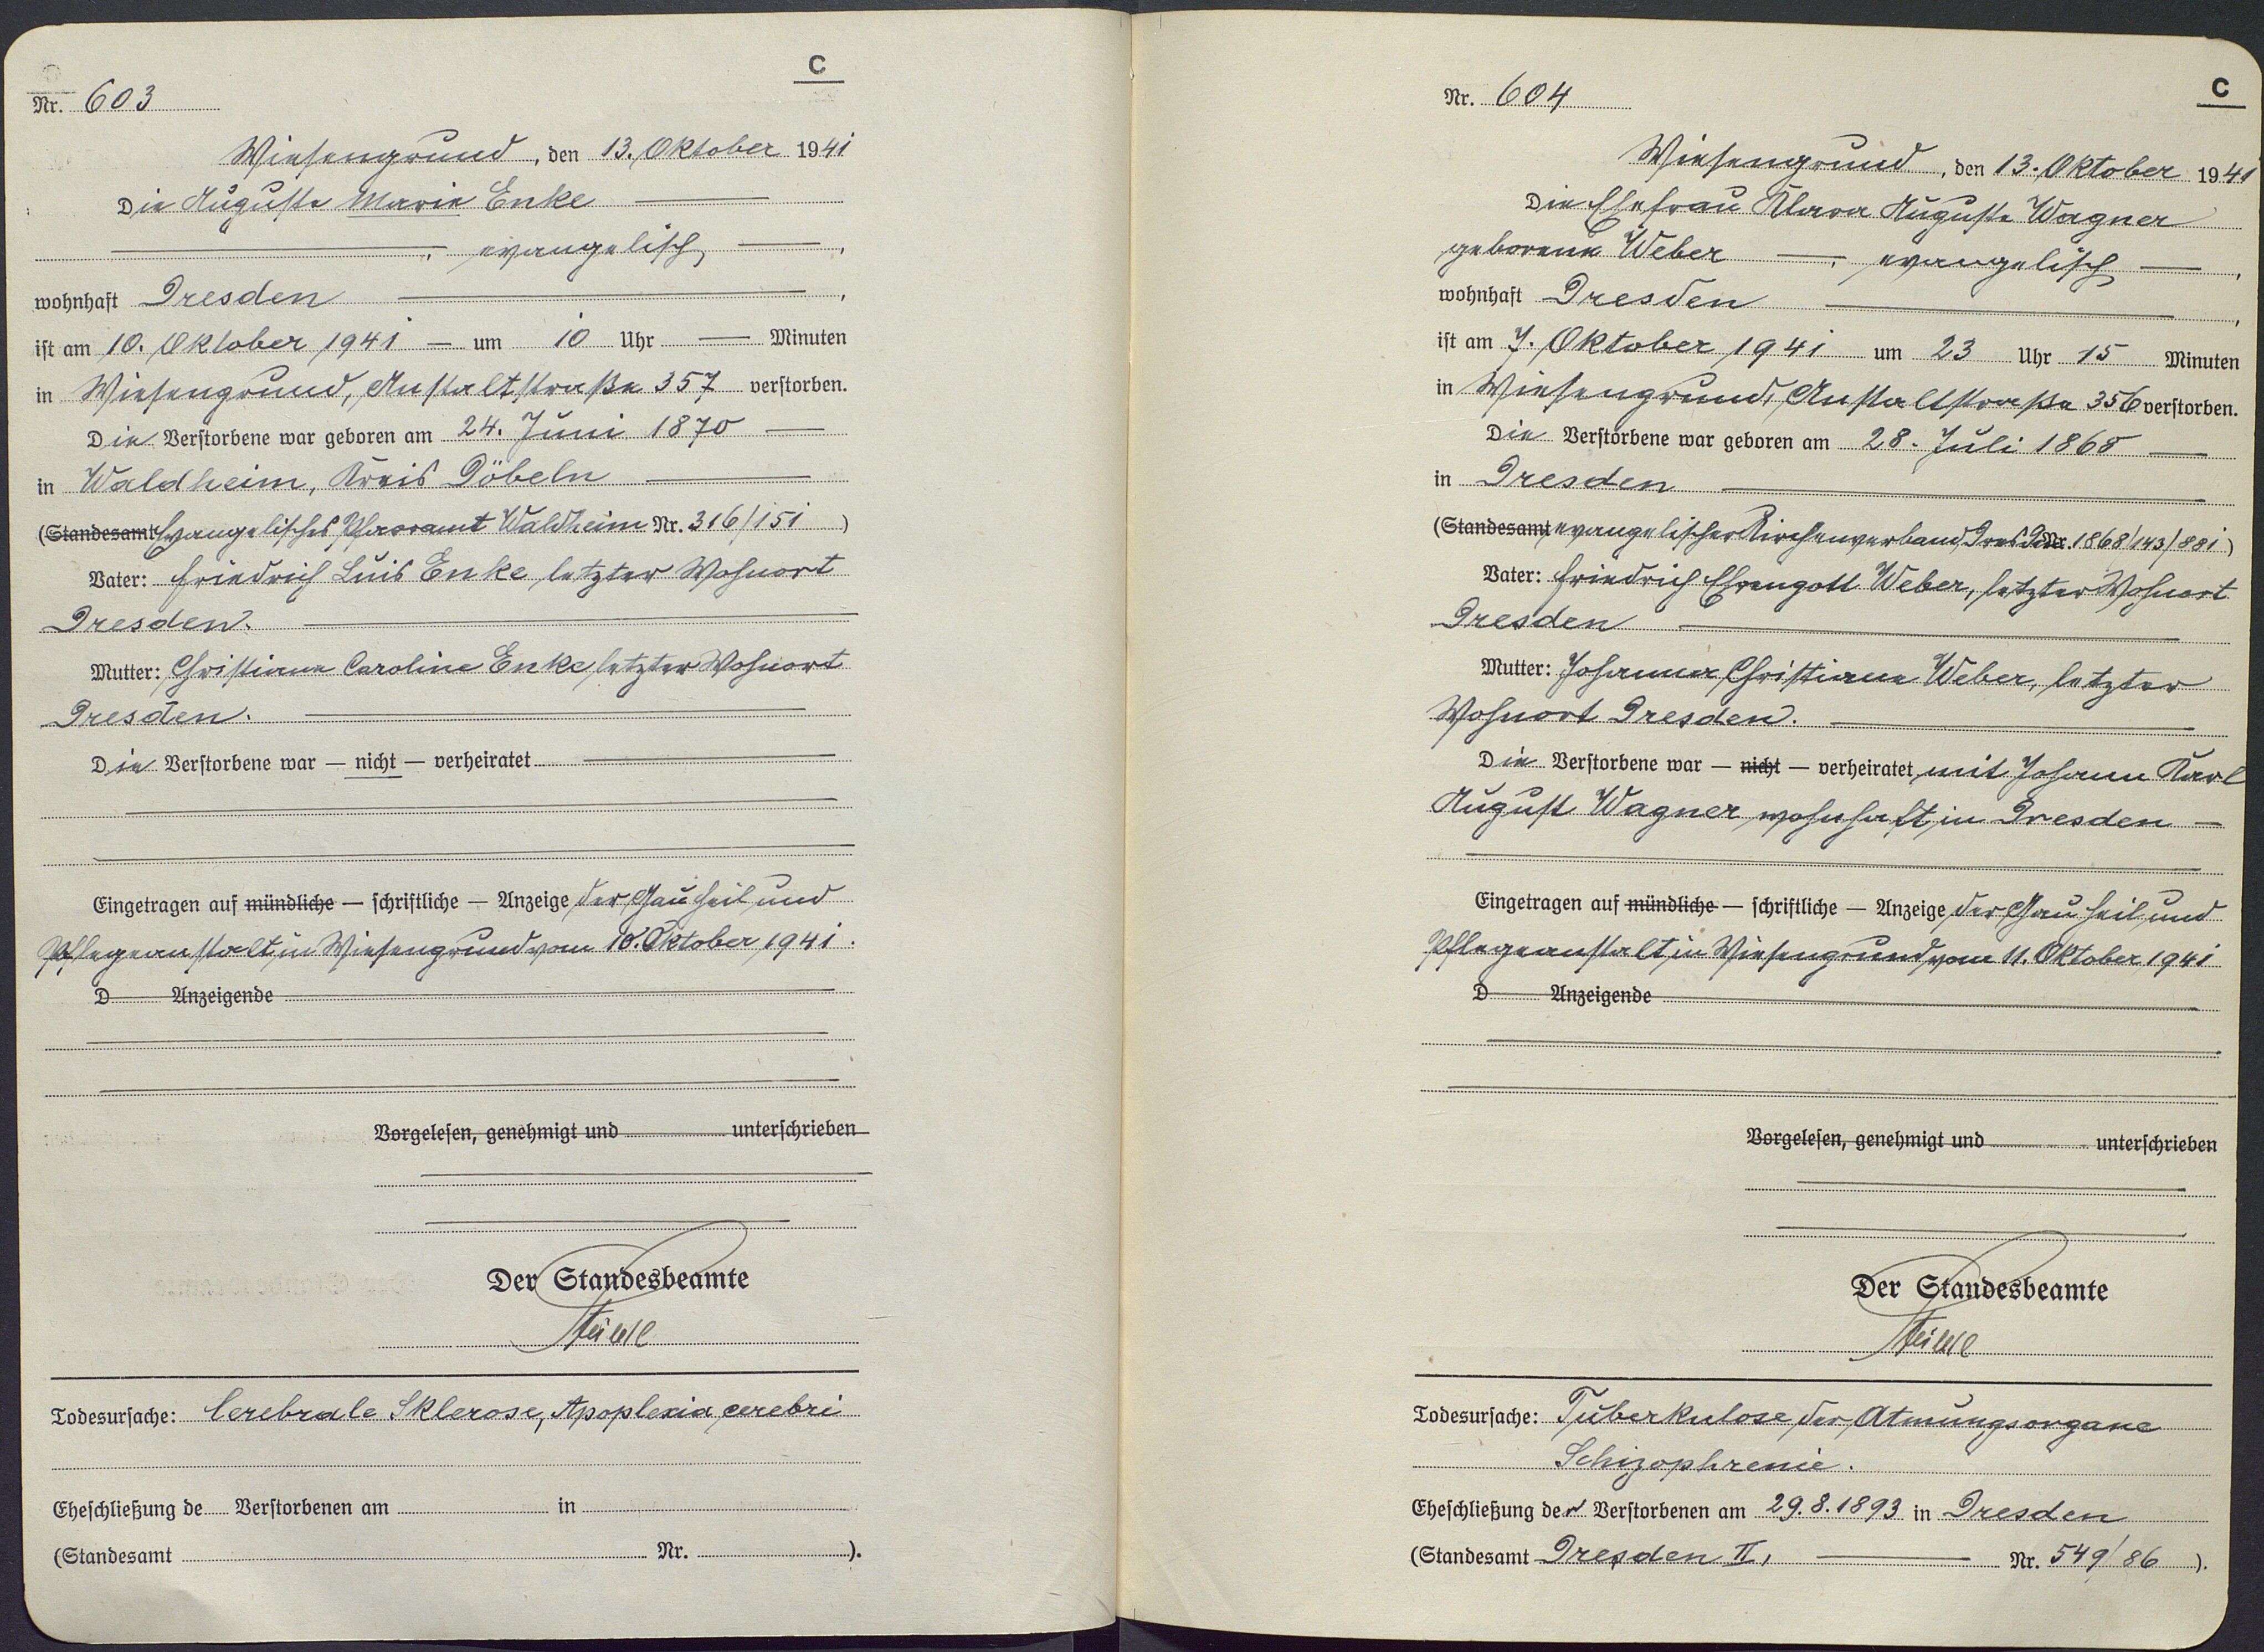 C
Nr. 603
Wiesengrund, den 13. Oktober 1941
Die Auguste Marie Enke
, evangelisch,
wohnhaft Dresden,
ist am 10. Oktober 1941 um 10 Uhr Minuten
in Wiesengrund, Anstaltstraße 357 verstorben.
Die Verstorbene war geboren am 24. Juni 1870
in Waldheim, Kreis Döbeln
(Standesamt Evangelisches Pfarramt Waldheim Nr. 316/151)
Vater: Friedrich Luis Enke, letzter Wohnort
Dresden.
Mutter: Christiane Caroline Enke, letzter Wohnort
Dresden.
Die Verstorbene war — nicht — verheiratet
Eingetragen auf mündliche — schriftliche — Anzeige der Gau Heil und
Pflegeanstalt in Wiesengrund vom 10. Oktober 1941.
D Anzeigende
Vorgelesen, genehmigt und unterschrieben
Der Standesbeamte
Todesursache: Cerebrale Sklerose, Apoplexia cerebri
Eheschließung de Verstorbenen am in
(Standesamt Nr. ).
C
Nr. 604
Wiesengrund, den 13. Oktober 1941
Die Ehefrau Klara Auguste Wagner
geborene Weber, evangelisch,
wohnhaft Dresden,
ist am 7. Oktober 1941 um 23 Uhr 15 Minuten
in Wiesengrund, Anstaltstraße 356 verstorben.
Die Verstorbene war geboren am 28. Juli 1868
in Dresden
(Standesamt evangelischer Kirchenverband Dresden Nr. 1868/143/881)
Vater: Friedrich Ehrengott Weber, letzter Wohnort
Dresden
Mutter: Johanna Christiane Weber, letzter
Wohnort Dresden.
Die Verstorbene war — nicht — verheiratet mit Johann Karl
August Wagner, wohnhaft in Dresden —
Eingetragen auf mündliche — schriftliche — Anzeige der Gau Heil und
Pflegeanstalt in Wiesengrund vom 11. Oktober 1941
D Anzeigende
Vorgelesen, genehmigt und unterschrieben
Der Standesbeamte
Todesursache: Tuberkulose der Atmungsorgane
Schizophrenie.
Eheschließung der Verstorbenen am 29.8.1893 in Dresden
(Standesamt Dresden II, Nr. 549/86).